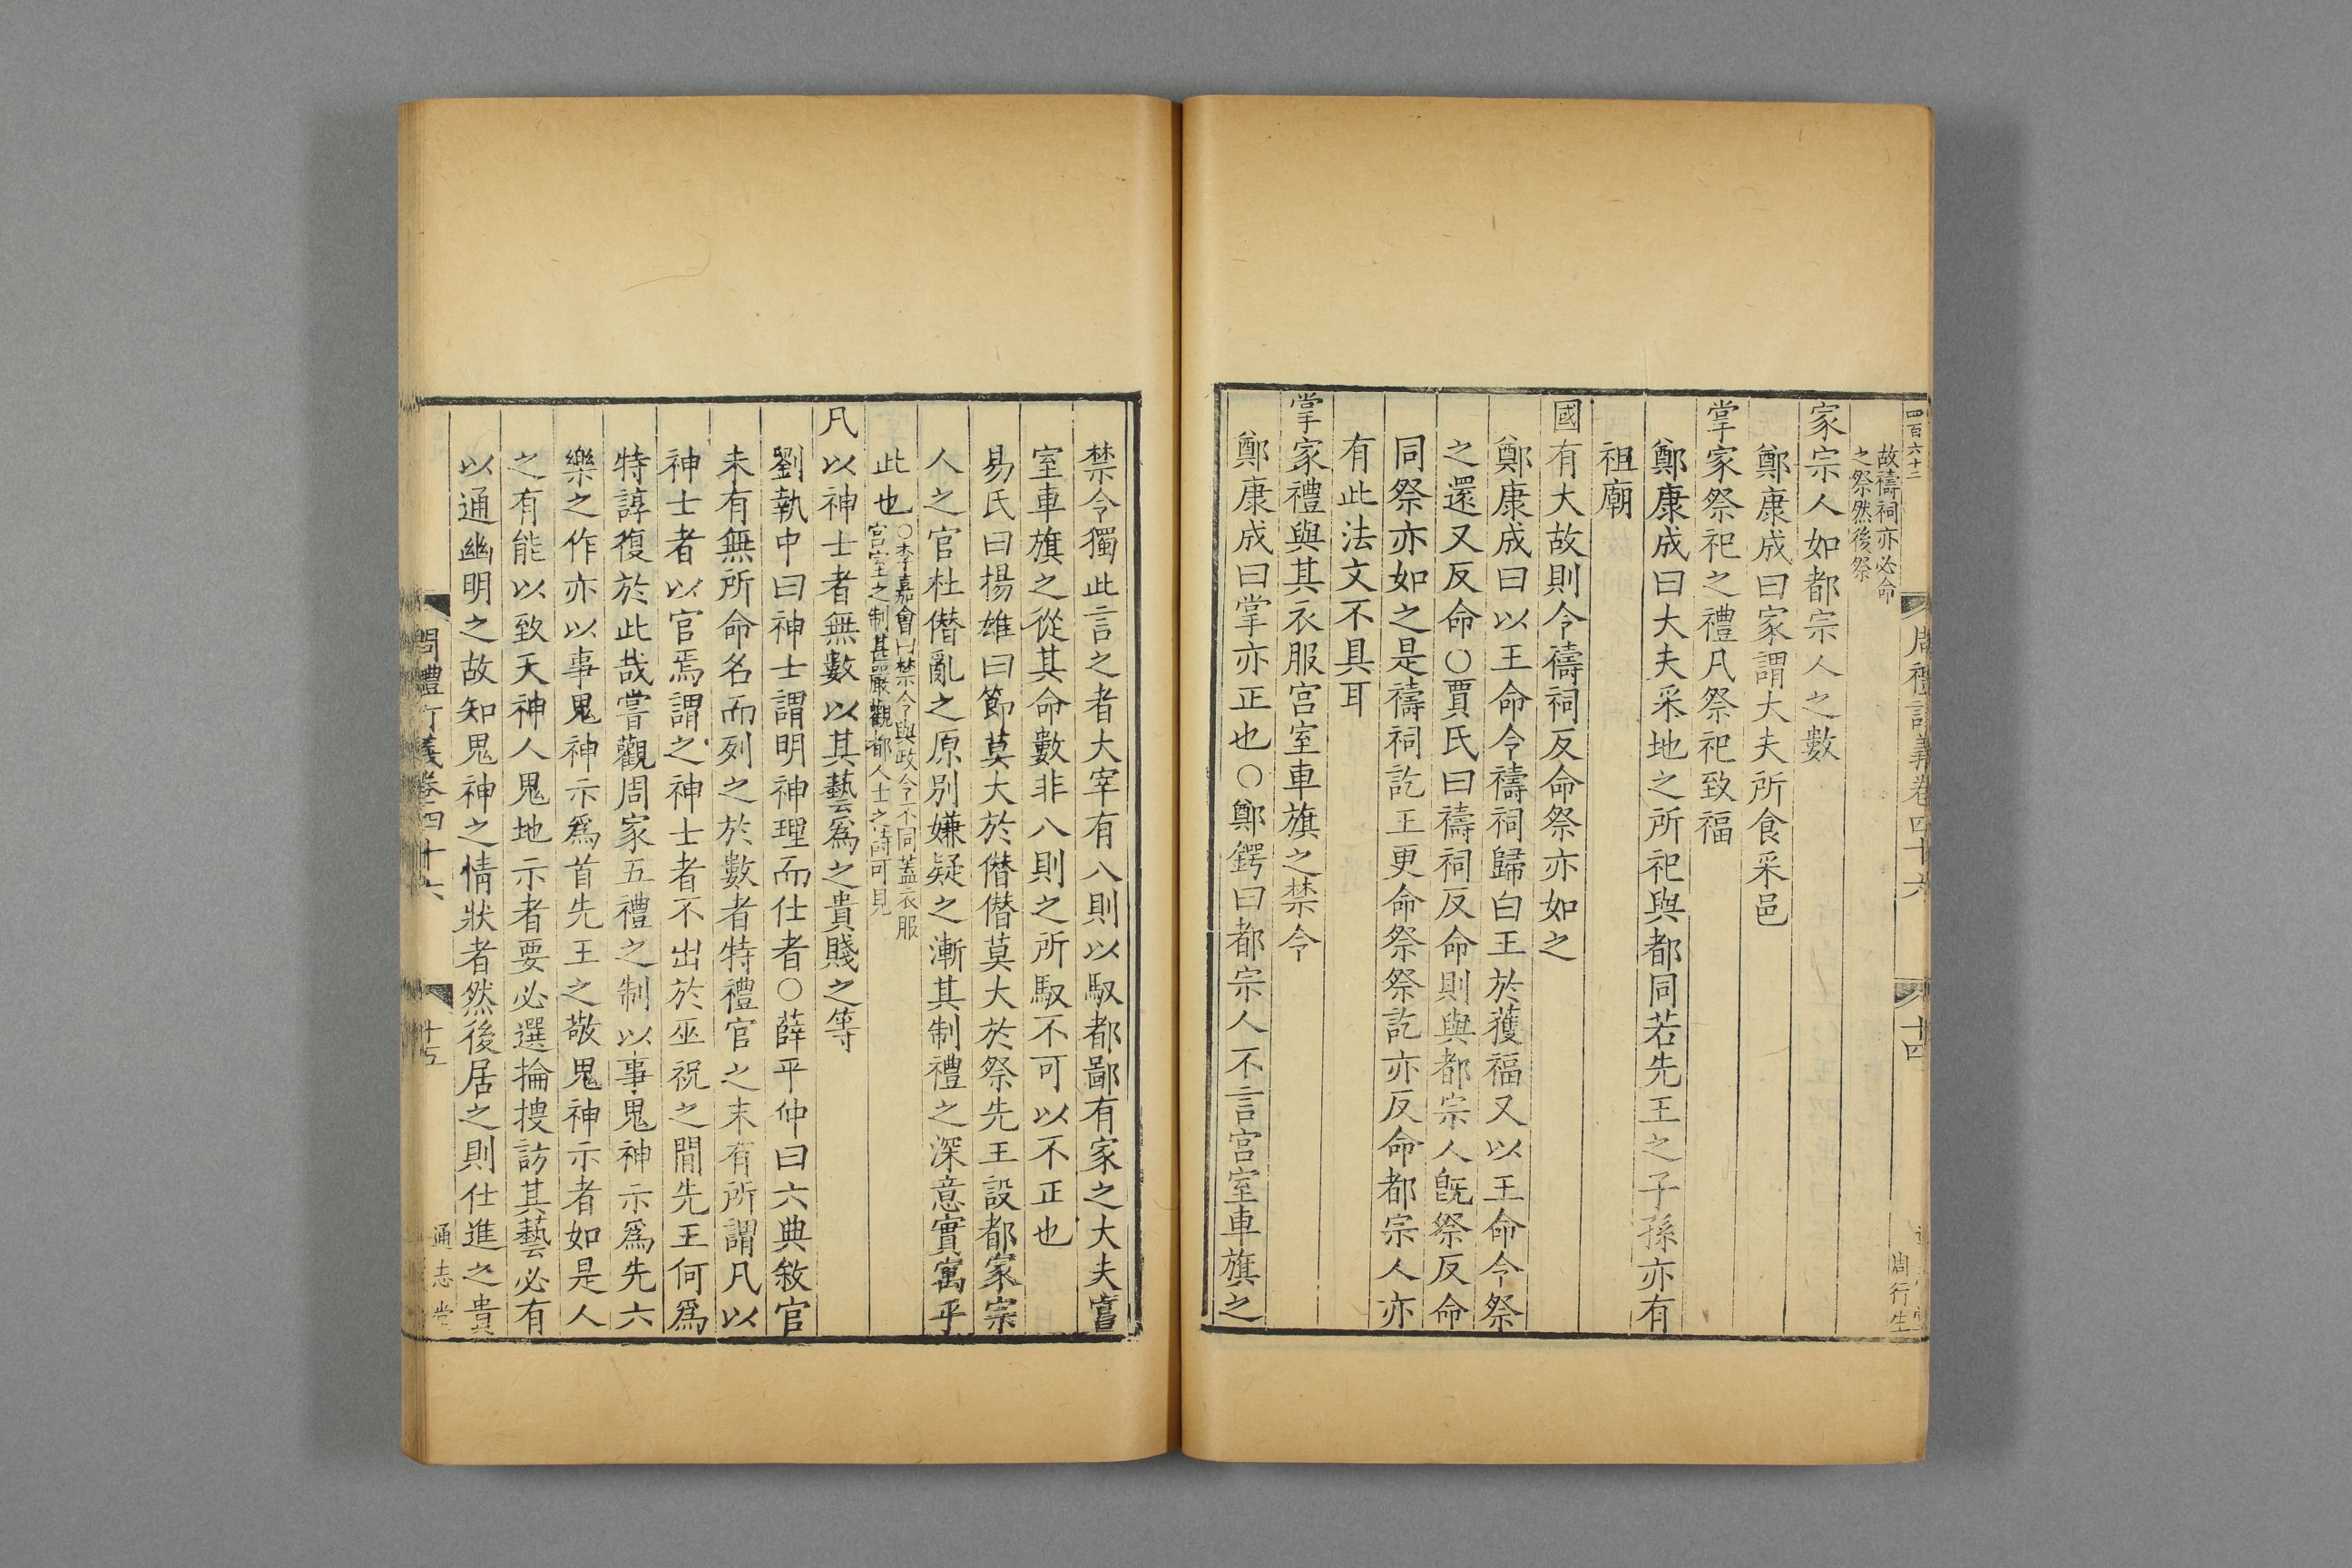 四百六十二
周禮訂義卷四十六
十四
周行生
故禱祠亦必命
之祭然後祭
家宗人如都宗人之數
鄭康成曰家謂大夫所食采邑
掌家祭祀之禮凡祭祀致福
鄭康成曰大夫采地之所祀與都同若先王之子孫亦有
祖廟
國有大故則令禱祠反命祭亦如之
鄭康成曰以王命令禱祠歸白王於獲福又以王命令祭
之還又反命○賈氏曰禱祠反命則與都宗人旣祭反命
同祭亦如之是禱祠訖王更命祭祭訖亦反命都宗人亦
有此法文不具耳
掌家禮與其衣服宫室車旗之禁令
鄭康成曰掌亦正也○鄭鍔曰都宗人不言宫室車旗之
禁令獨此言之者大宰有八則以馭都鄙有家之大夫嘗
室車旗之從其命數非八則之所馭不可以不正也
易氏曰揚雄曰節莫大於僭僭莫大於祭先王設都家宗
人之官杜僭亂之原別嫌疑之漸其制禮之深意實寓乎
此也○李嘉會曰禁令與政令不同蓋衣服
宫室之制甚嚴觀都人士之詩可見
凡以神士者無數以其藝爲之貴賤之等
劉執中曰神士謂明神理而仕者○薛平仲曰六典敘官
未有無所命名而列之於數者特禮官之末有所謂凡以
神士者以官焉謂之神士者不出於巫祝之間先王何爲
特諄復於此哉嘗觀周家五禮之制以事鬼神示爲先六
樂之作亦以事鬼神示爲首先王之敬鬼神示者如是人
之有能以致天神人鬼地示者要必選掄搜訪其藝必有
以通幽明之故知鬼神之情狀者然後居之則仕進之貴
周禮訂義卷四十六
十五
通志堂